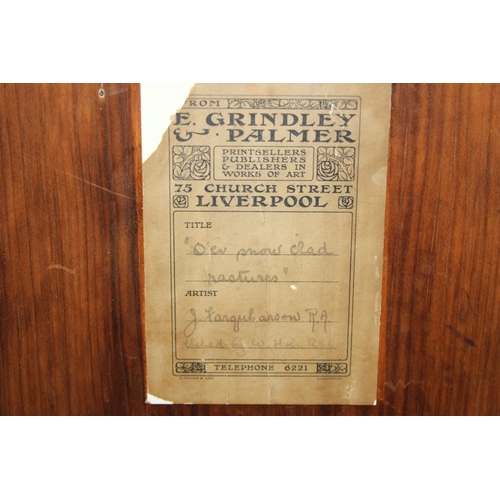 FROM
E. GRINDLEY
& PALMER
PRINTSELLERS
PUBLISHERS
& DEALERS IN
WORKS OF ART
75 CHURCH STREET
LIVERPOOL
TITLE
"O'er snow clad
pastures"
ARTIST
J. Farquharson R.A
Etched by W.
TELEPHONE 6221